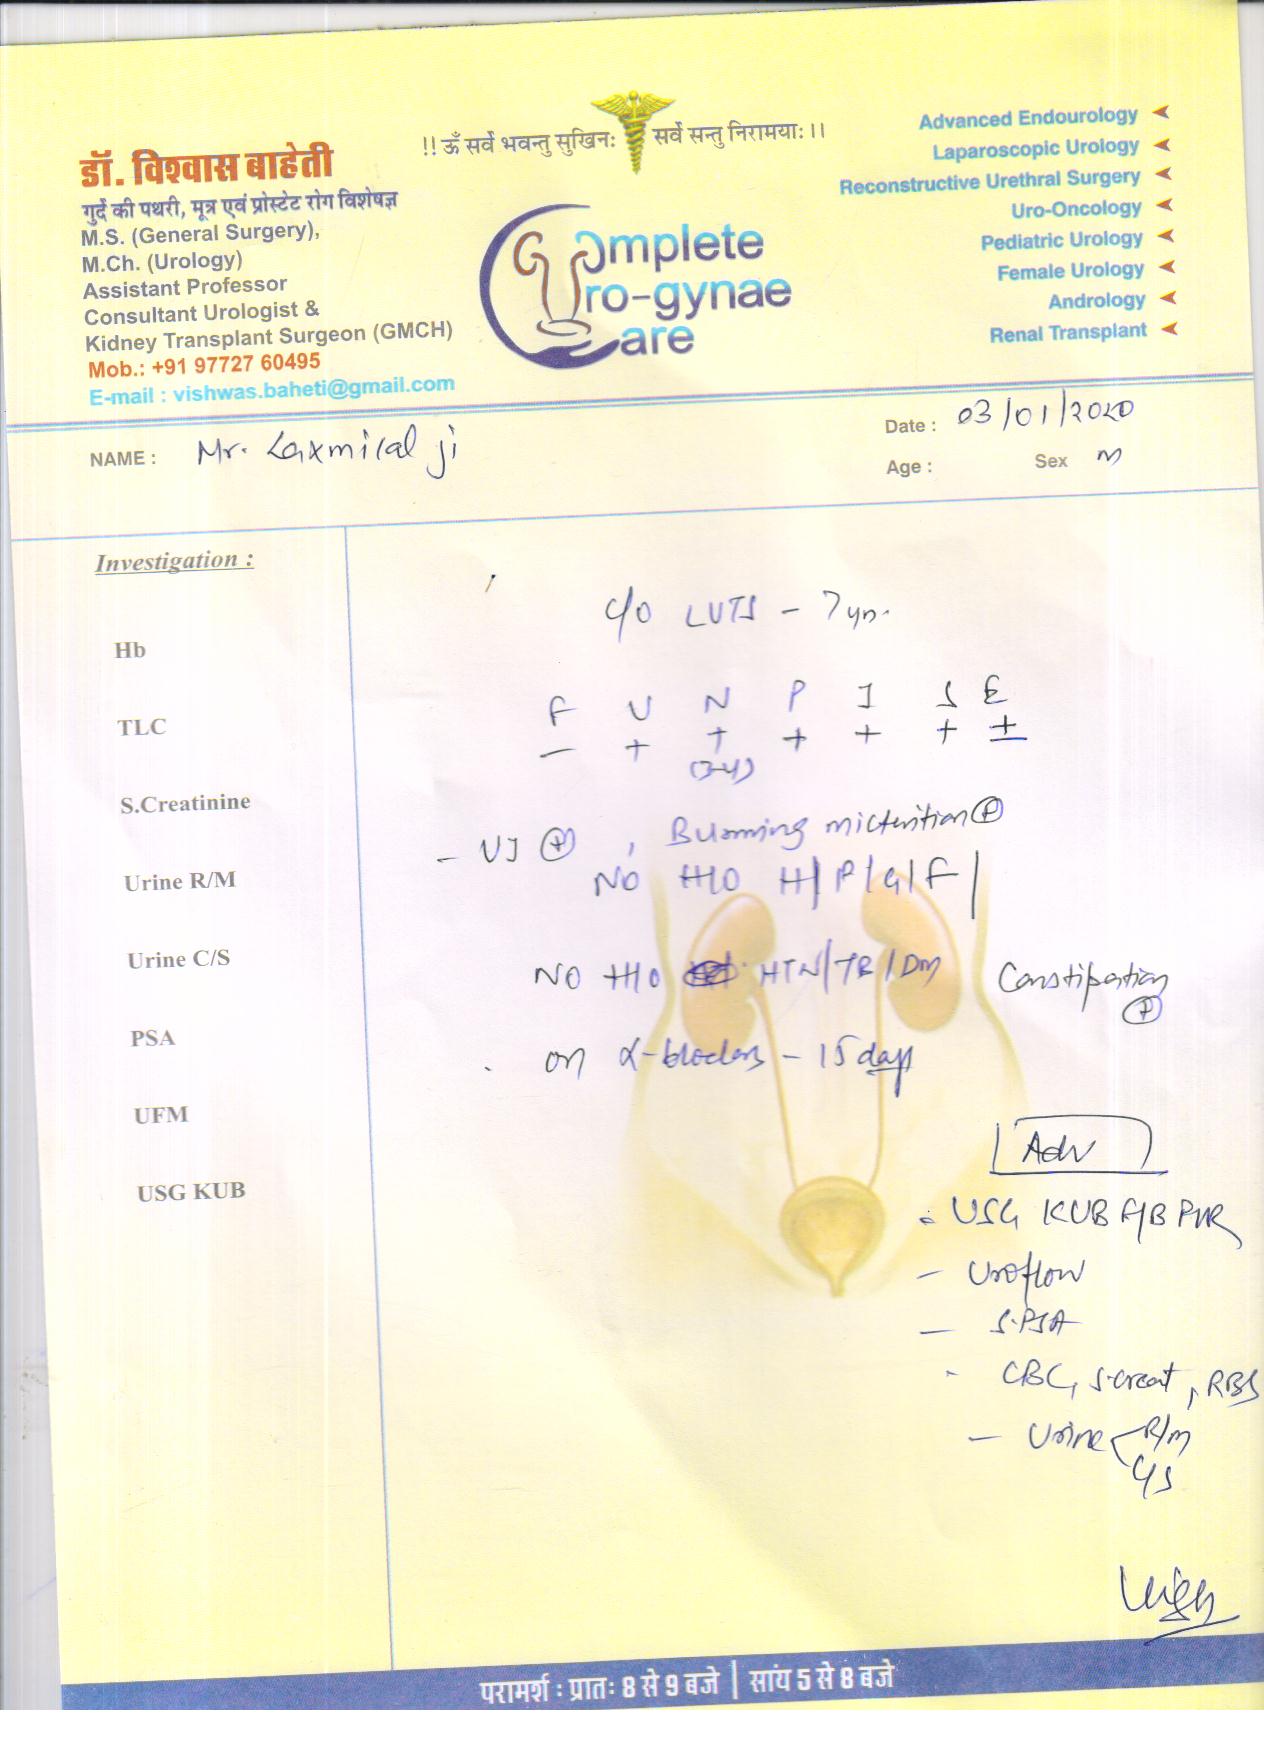 !! ॐ सर्वे भवन्तु सुखिनः सर्वे सन्तु निरामयाः ।।
डॉ. विश्वास बाहेती
गुर्दे की पथरी, मूत्र एवं प्रोस्टेट रोग विशेषज्ञ
M.S. (General Surgery),
M.Ch. (Urology)
Assistant Professor
Consultant Urologist &
Kidney Transplant Surgeon (GMCH)
Mob.: +91 97727 60495
E-mail : vishwas.baheti@gmail.com
Complete
Uro-gynae
Care
Advanced Endourology
Laparoscopic Urology
Reconstructive Urethral Surgery
Uro-Oncology
Pediatric Urology
Female Urology
Andrology
Renal Transplant
NAME : Mr. Laxmilal ji
Date : 03/01/2020
Age : Sex M
Investigation :
Hb
TLC
S.Creatinine
Urine R/M
Urine C/S
PSA
UFM
USG KUB
C/O LUTS - 7 yrs.
F U N P I S E
- + + + + + ±
(3-4)
- UI (+) , Burning micturition (+)
NO H/O H/P/G/F/
NO H/O HTN/TB/DM Constipation
(+)
on α-blockers - 15 days
Adv
- USG KUB PVR
- Uroflow
- S.PSA
- CBC, S.creat, RBS
- Urine R/M
C/S
परामर्श : प्रातः 8 से 9 बजे | सांय 5 से 8 बजे